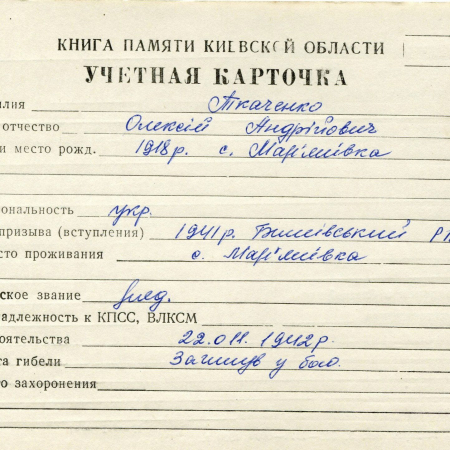 КНИГА ПАМЯТИ КИЕВСКОЙ ОБЛАСТИ
УЧЕТНАЯ КАРТОЧКА
илия Ткаченко
отчество Олексій Андрійович
и место рожд. 1918р. с. Мар'янівка
ональность укр.
призыва (вступления) 1941р. Бишівський Р
сто проживания с. Мар'янівка
ское звание
надлежность к КПСС, ВЛКСМ
оятельства 22.011.1942р.
та гибели Загинув у бою.
о захоронения